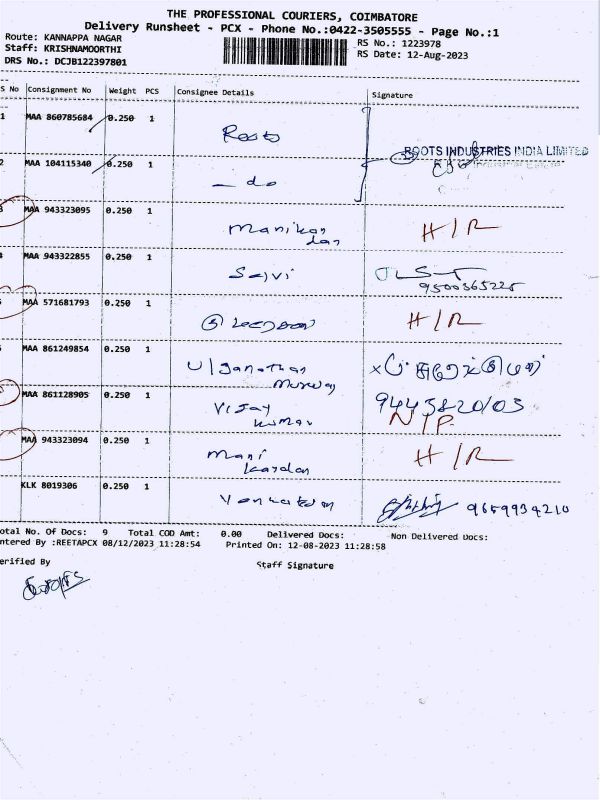 THE PROFESSIONAL COURIERS, COIMBATORE
Delivery Runsheet - PCX - Phone No.:0422-3505555 - Page No.:1
Route: KANNAPPA NAGAR
Staff: KRISHNAMOORTHI
DRS No.: DCJB122397801
RS No.: 1223978
RS Date: 12-Aug-2023
S No Consignment No Weight PCS Consignee Details Signature
1 MAA 860785684 0.250 1 Roots
ROOTS INDUSTRIES INDIA LIMITED
2 MAA 104115340 0.250 1 - do
3 MAA 943323095 0.250 1 Manikan
dan H/R
4 MAA 943322855 0.250 1 Selvi
9500365225
MAA 571681793 0.250 1 H/R
MAA 861249854 0.250 1
MAA 861128905 0.250 1 Vijay
Kumar
N/P
MAA 943323094 0.250 1 Mani
Kandan H/R
KLK 8019306 0.250 1 9659934210
otal No. Of Docs: 9 Total COD Amt: 0.00 Delivered Docs: Non Delivered Docs:
ntered By :REETAPCX 08/12/2023 11:28:54 Printed On: 12-08-2023 11:28:58
erified By Staff Signature